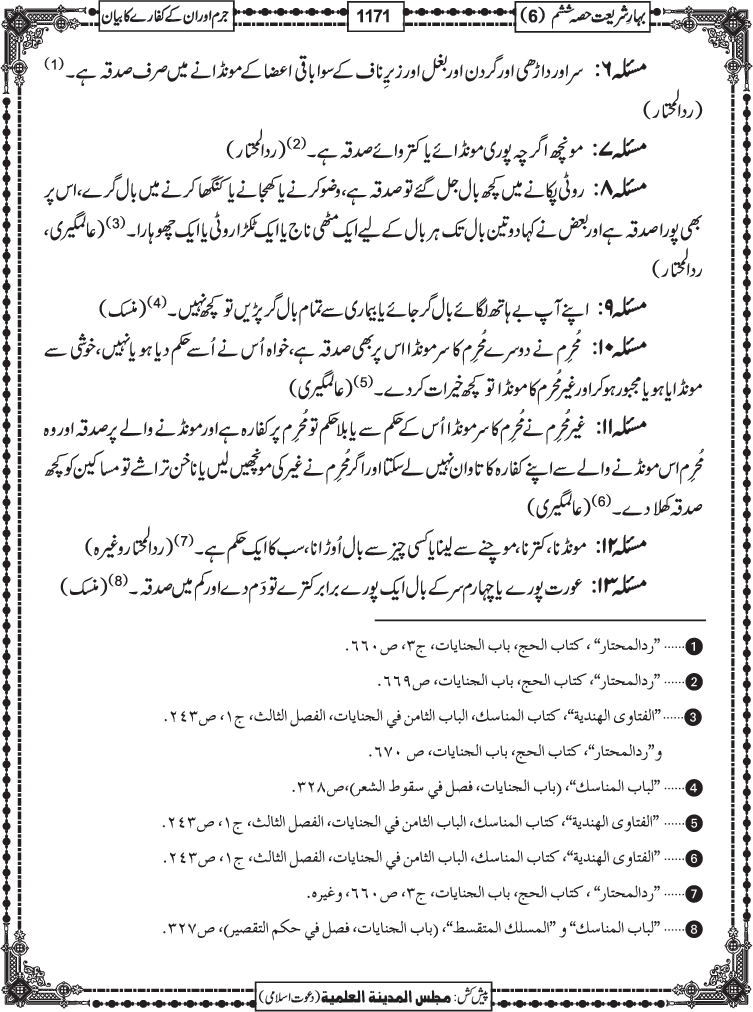 بہارِ شریعت حصہ ششم (6)
1171
جرم اور ان کے کفارے کا بیان
مسئلہ ۶: سر اور داڑھی اور گردن اور بغل اور زیرِ ناف کے سوا باقی اعضا کے مونڈانے میں صرف صدقہ ہے۔(1)
(ردالمحتار)
مسئلہ ۷: مونچھ اگرچہ پوری مونڈائے یا کتروائے صدقہ ہے۔(2) (ردالمحتار)
مسئلہ ۸: روٹی پکانے میں کچھ بال جل گئے تو صدقہ ہے، وضو کرنے یا کھجانے یا کنگھا کرنے میں بال گرے، اس پر
بھی پورا صدقہ ہے اور بعض نے کہا دو تین بال تک ہر بال کے لیے ایک مٹھی ناج یا ایک ٹکڑا روٹی یا ایک چھوہارا۔(3) (عالمگیری،
ردالمحتار)
مسئلہ ۹: اپنے آپ بے ہاتھ لگائے بال گر جائے یا بیماری سے تمام بال گر پڑیں تو کچھ نہیں۔(4) (منسک)
مسئلہ ۱۰: مُحرِم نے دوسرے مُحرِم کا سر مونڈا اس پر بھی صدقہ ہے، خواہ اُس نے اُسے حکم دیا ہو یا نہیں، خوشی سے
مونڈایا ہو یا مجبور ہو کر اور غیر مُحرِم کا مونڈا تو کچھ خیرات کر دے۔(5) (عالمگیری)
مسئلہ ۱۱: غیر مُحرِم نے مُحرِم کا سر مونڈا اُس کے حکم سے یا بلا حکم تو مُحرِم پر کفارہ ہے اور مونڈنے والے پر صدقہ اور وہ
مُحرِم اس مونڈنے والے سے اپنے کفارہ کا تاوان نہیں لے سکتا اور اگر مُحرِم نے غیر کی مونچھیں لیں یا ناخن تراشے تو مساکین کو کچھ
صدقہ کھلا دے۔(6) (عالمگیری)
مسئلہ ۱۲: مونڈنا، کترنا، موچنے سے لینا یا کسی چیز سے بال اُوڑانا، سب کا ایک حکم ہے۔(7) (ردالمحتار وغیرہ)
مسئلہ ۱۳: عورت پورے یا چہارم سر کے بال ایک پورے برابر کترے تو دَم دے اور کم میں صدقہ۔(8) (منسک)
1 ...... ”ردالمحتار“، كتاب الحج، باب الجنايات، ج۳، ص۶۶۰.
2 ...... ”ردالمحتار“، كتاب الحج، باب الجنايات، ص۶۶۹.
3 ...... ”الفتاوى الهندية“، كتاب المناسك، الباب الثامن في الجنايات، الفصل الثالث، ج۱، ص۲۴۳.
و”ردالمحتار“، كتاب الحج، باب الجنايات، ص ۶۷۰.
4 ...... ”لباب المناسك“، (باب الجنايات، فصل في سقوط الشعر)، ص۳۲۸.
5 ...... ”الفتاوى الهندية“، كتاب المناسك، الباب الثامن في الجنايات، الفصل الثالث، ج۱، ص۲۴۳.
6 ...... ”الفتاوى الهندية“، كتاب المناسك، الباب الثامن في الجنايات، الفصل الثالث، ج۱، ص۲۴۳.
7 ...... ”ردالمحتار“، كتاب الحج، باب الجنايات، ج۳، ص۶۶۰، وغيره.
8 ...... ”لباب المناسك“ و ”المسلك المتقسط“، (باب الجنايات، فصل في حكم التقصير)، ص۳۲۷.
پیش کش: مجلس المدينة العلمية (دعوتِ اسلامی)